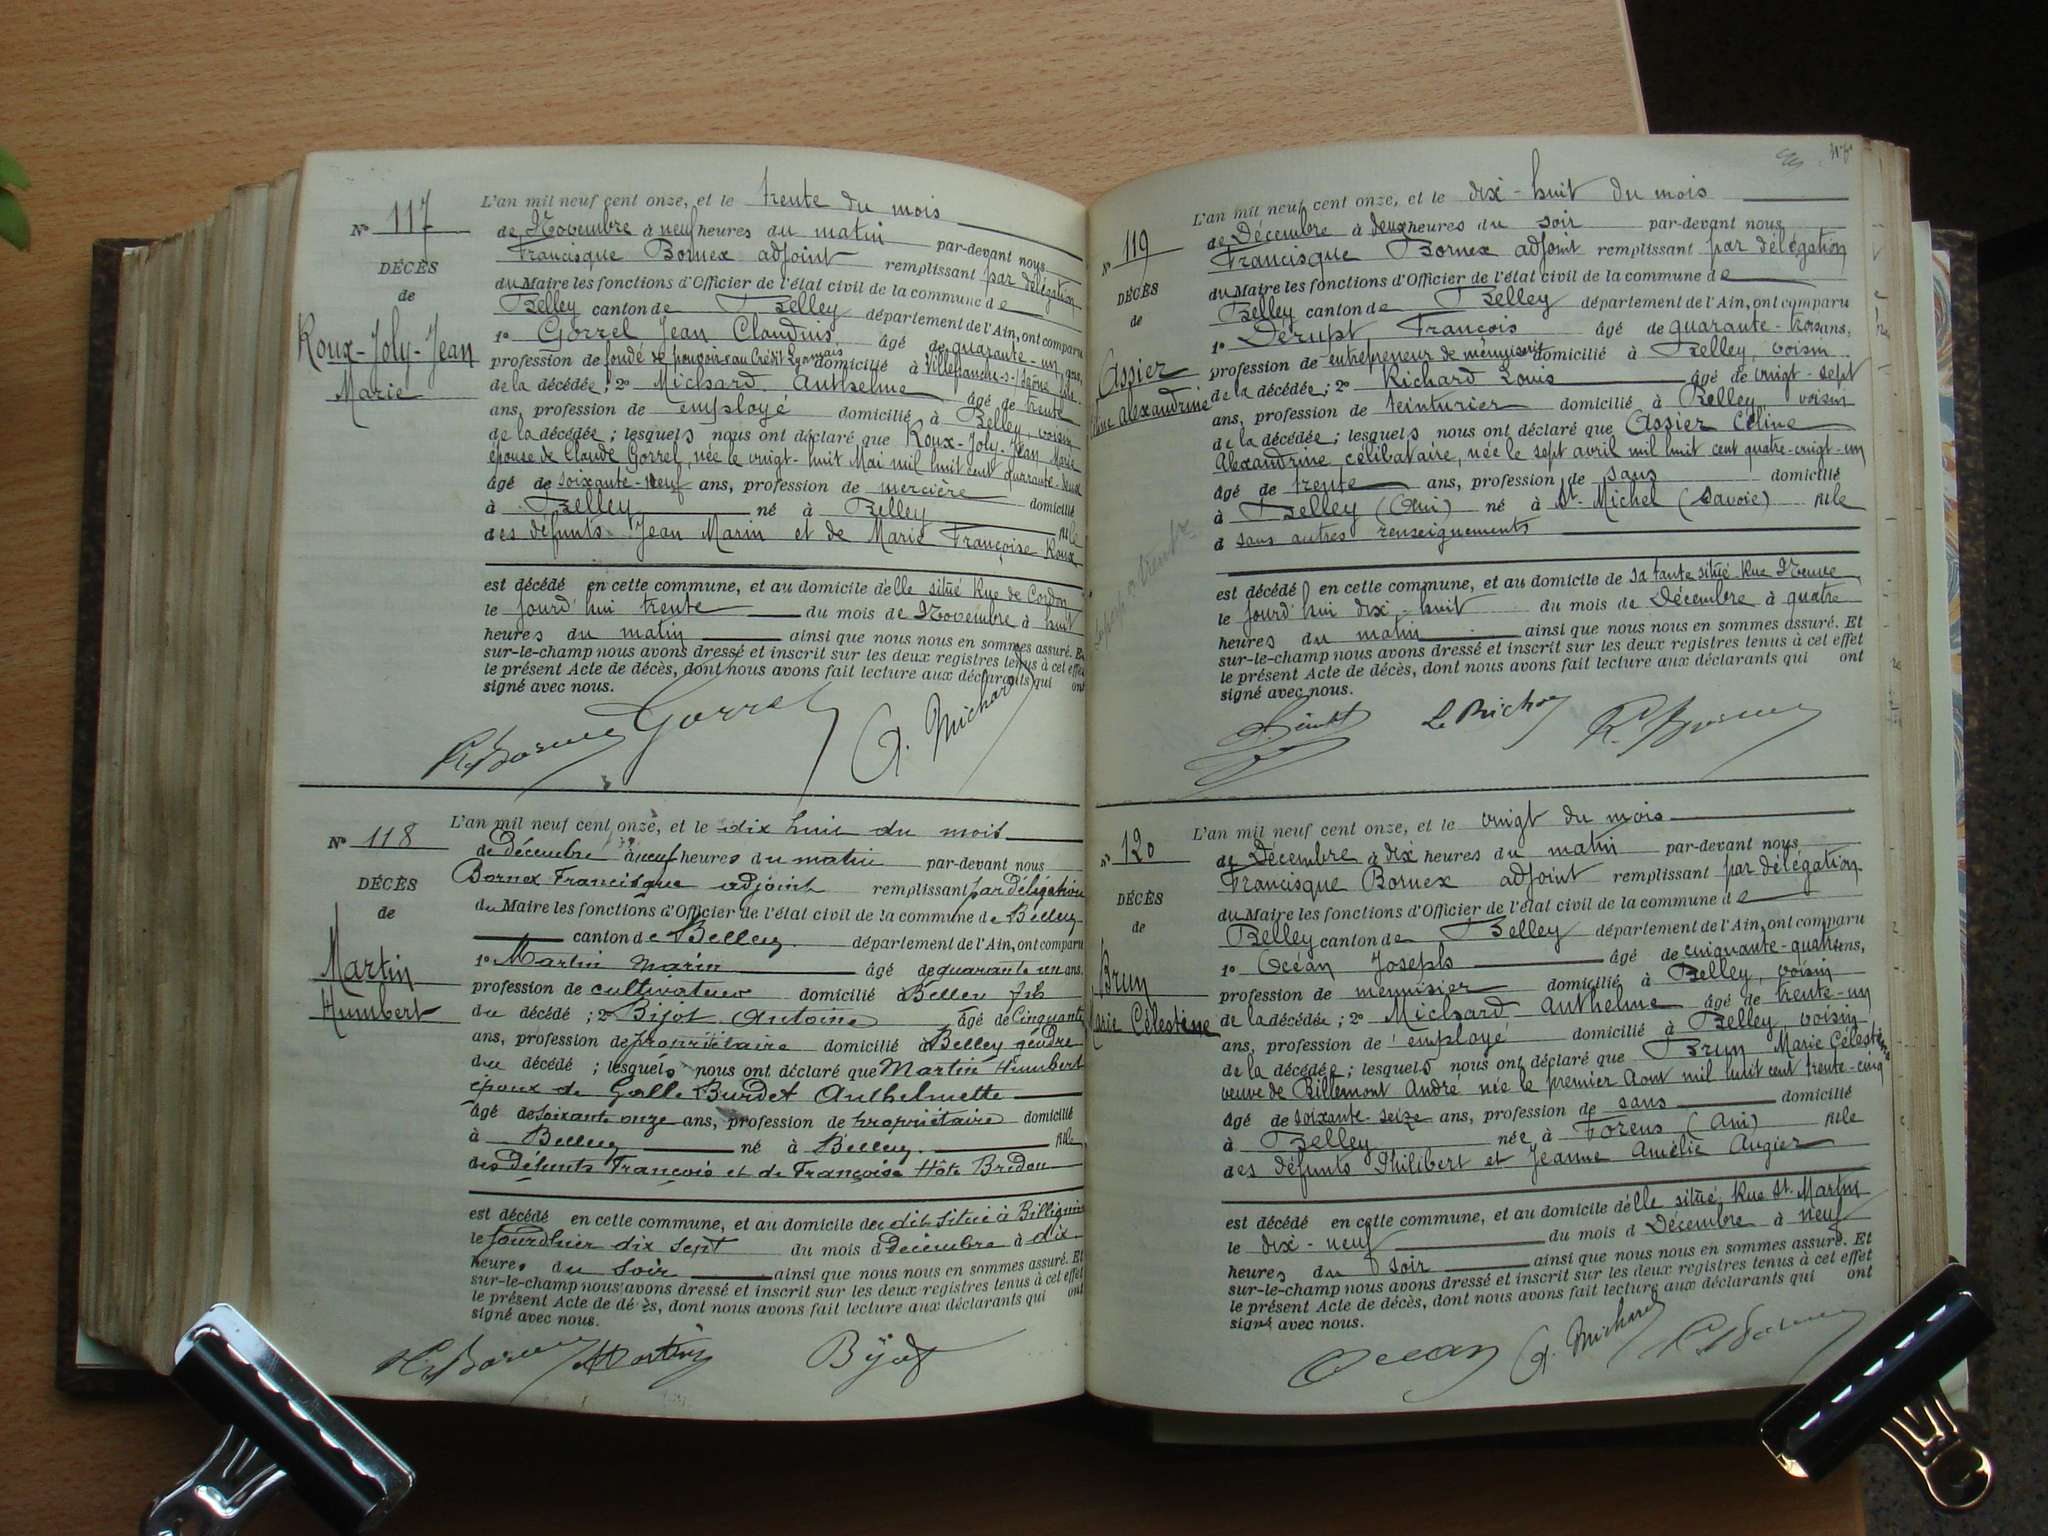 N° 117
DÉCÈS
de
Roux-Joly-Jean
Marie
L'an mil neuf cent onze, et le trente du mois
de Novembre à neuf heures du matin par-devant nous
Francisque Bornex adjoint remplissant par délégation
du Maire les fonctions d'Officier de l'état civil de la commune de
Belley canton de Belley département de l'Ain, ont comparu
1° Gorrel Jean Claudius, âgé de quarante-un ans,
profession de fondé de pouvoirs au Crédit Lyonnais domicilié à Villefranche-s-/Saône, fils
de la décédée; 2° Michard Anthelme âgé de trente
ans, profession de employé domicilié à Belley, voisin
de la décédée; lesquels nous ont déclaré que Roux-Joly-Jean Marie
épouse de Claude Gorrel, née le vingt-huit Mai mil huit cent quarante-deux
âgé de soixante-neuf ans, profession de mercière domicilié
à Belley né à Belley fille
des défunts Jean Marin et de Marie Françoise Roux
est décédé en cette commune, et au domicile d'elle situé Rue de Cordon
le jourd'hui trente du mois de Novembre à huit
heures du matin ainsi que nous nous en sommes assuré. Et
sur-le-champ nous avons dressé et inscrit sur les deux registres tenus à cet effet
le présent Acte de décès, dont nous avons fait lecture aux déclarants qui ont
signé avec nous.
F. Bornex Gorrel A. Michard
N° 118
DÉCÈS
de
Martin
Humbert
L'an mil neuf cent onze, et le dix huit du mois
de Décembre à neuf heures du matin par-devant nous
Bornex Francisque adjoint remplissant par délégation
du Maire les fonctions d'Officier de l'état civil de la commune de Belley
canton de Belley département de l'Ain, ont comparu
1° Martin Marin âgé de quarante un ans,
profession de cultivateur domicilié à Belley fils
du décédé; 2° Bijot Antoine âgé de Cinquante
ans, profession de propriétaire domicilié à Belley gendre
du décédé; lesquels nous ont déclaré que Martin Humbert
époux de Golle Burdet Anthelmette
âgé de soixante onze ans, profession de propriétaire domicilié
à Belley né à Belley fils
des Défunts François et de Françoise Hôte Bridon
est décédé en cette commune, et au domicile du dit situé à Billignin
le jourd'hier dix sept du mois d Décembre à dix
heures du soir ainsi que nous nous en sommes assuré. Et
sur-le-champ nous avons dressé et inscrit sur les deux registres tenus à cet effet
le présent Acte de décès, dont nous avons fait lecture aux déclarants qui ont
signé avec nous.
F. Bornex Martin Bijot
N° 119
DÉCÈS
de
Assier
Céline Alexandrine
L'an mil neuf cent onze, et le dix-huit du mois
de Décembre à deux heures du soir par-devant nous
Francisque Bornex adjoint remplissant par délégation
du Maire les fonctions d'Officier de l'état civil de la commune de
Belley canton de Belley département de l'Ain, ont comparu
1° Dérupt François âgé de quarante-trois ans,
profession de entrepreneur de menuiserie domicilié à Belley, voisin
de la décédée; 2° Richard Louis âgé de vingt-sept
ans, profession de teinturier domicilié à Belley, voisin
de la décédée; lesquels nous ont déclaré que Assier Céline
Alexandrine, célibataire, née le sept avril mil huit cent quatre-vingt-un
âgé de trente ans, profession de sans domicilié
à Belley (Ain) né à St-Michel (Savoie) fille
d sans autres renseignements
est décédé en cette commune, et au domicile de sa tante situé Rue Neuve
le jourd'hui dix-huit du mois de Décembre à quatre
heures du matin ainsi que nous nous en sommes assuré. Et
sur-le-champ nous avons dressé et inscrit sur les deux registres tenus à cet effet
le présent Acte de décès, dont nous avons fait lecture aux déclarants qui ont
signé avec nous.
F. Bornex
N° 120
DÉCÈS
de
Brun
Marie Célestine
L'an mil neuf cent onze, et le vingt du mois
de Décembre à dix heures du matin par-devant nous
Francisque Bornex adjoint remplissant par délégation
du Maire les fonctions d'Officier de l'état civil de la commune de
Belley canton de Belley département de l'Ain, ont comparu
1° Océan Joseph âgé de cinquante-quatre ans,
profession de menuisier domicilié à Belley, voisin
de la décédée; 2° Michard Anthelme âgé de trente-un
ans, profession de employé domicilié à Belley voisin
de la décédée; lesquels nous ont déclaré que Brun Marie Célestine
veuve de Billemont André née le premier Aout mil huit cent trente-cinq
âgé de soixante-seize ans, profession de sans domicilié
à Belley née à Forens (Ain) fille
des défunts Philibert et Jeanne Amélie Augier
est décédé en cette commune, et au domicile d'elle situé, Rue St. Martin
le dix-neuf du mois d Décembre à neuf
heures du soir ainsi que nous nous en sommes assuré. Et
sur-le-champ nous avons dressé et inscrit sur les deux registres tenus à cet effet
le présent Acte de décès, dont nous avons fait lecture aux déclarants qui ont
signé avec nous.
Océan A. Michard F. Bornex